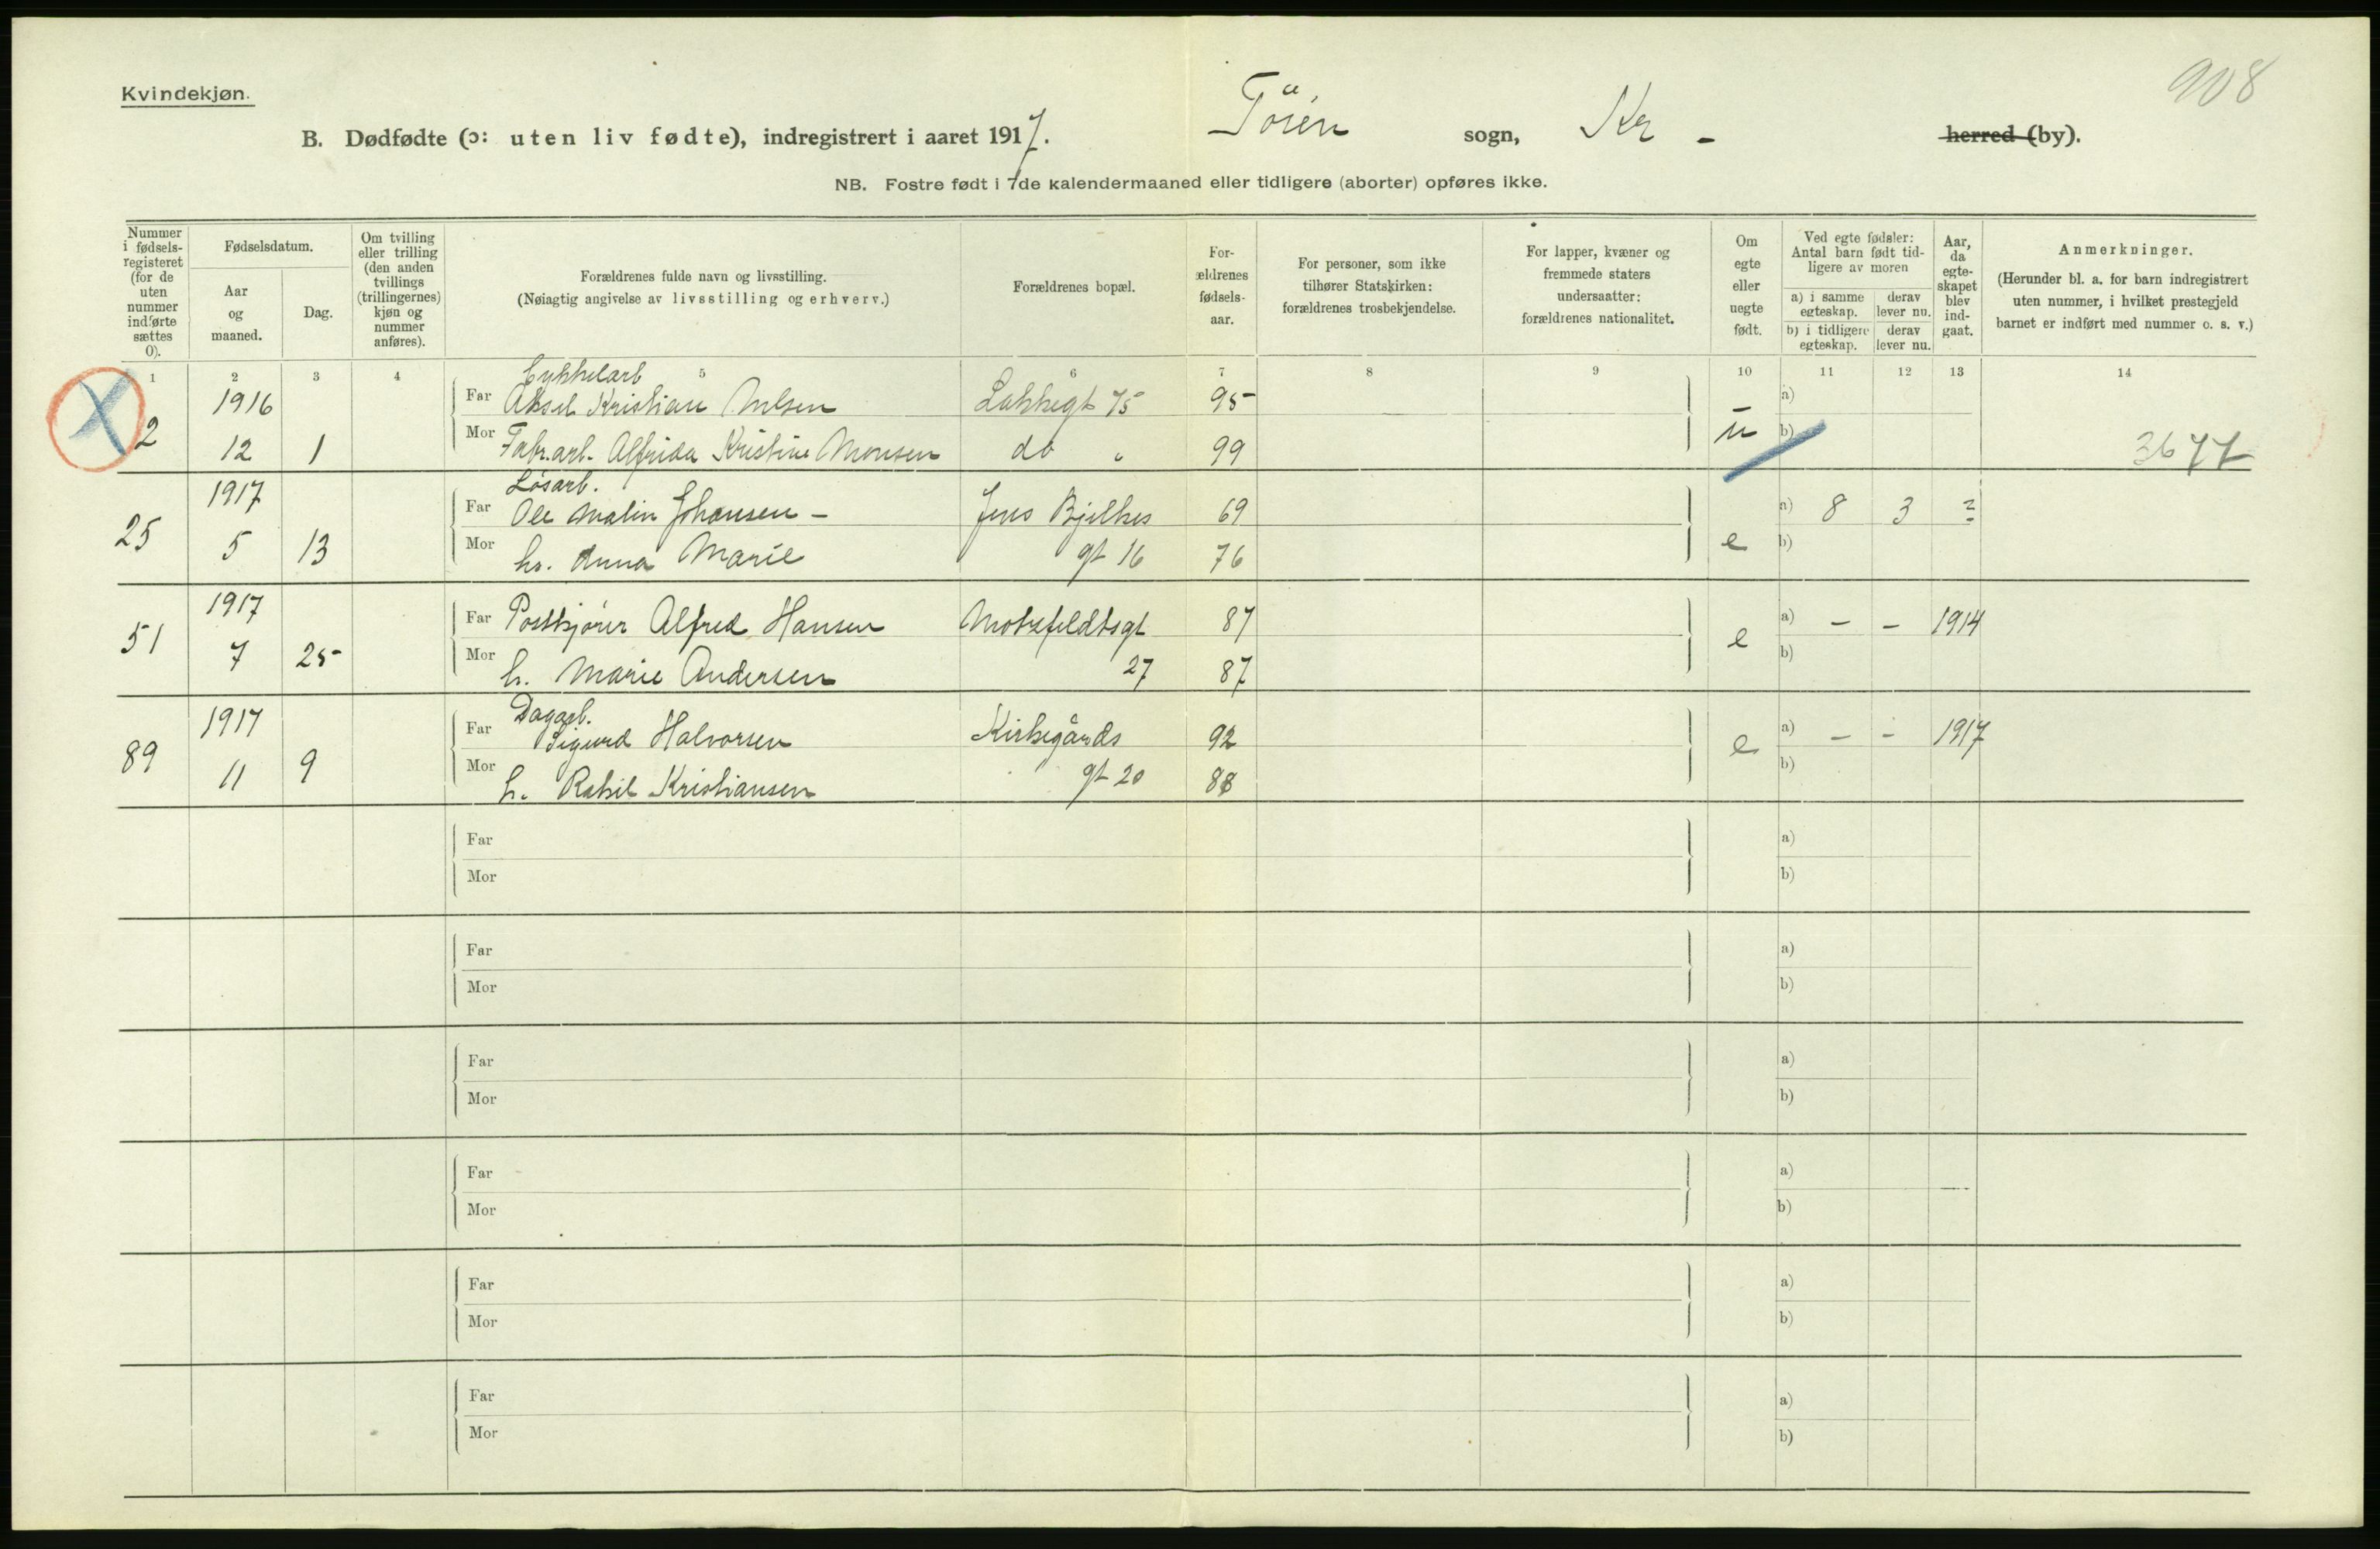 908
Kvindekjøn.
B. Dødfødte (ɔ: uten liv fødte), indregistrert i aaret 1917. Töien sogn, Kr - herred (by).
NB. Fostre født i 7de kalendermaaned eller tidligere (aborter) opføres ikke.
Nummer i fødselsregisteret (for de uten nummer indførte sættes 0).
Fødselsdatum.
Aar og maaned.
Dag.
Om tvilling eller trilling (den anden tvillings (trillingernes) kjøn og nummer anføres).
Forældrenes fulde navn og livsstilling.
(Nøiagtig angivelse av livsstilling og erhverv.)
Forældrenes bopæl.
Forældrenes fødselsaar.
For personer, som ikke tilhører Statskirken: forældrenes trosbekjendelse.
For lapper, kvæner og fremmede staters undersaatter: forældrenes nationalitet.
Om egte eller uegte født.
Ved egte fødsler: Antal barn født tidligere av moren
a) i samme egteskap. derav lever nu.
b) i tidligere egteskap. derav lever nu.
Aar, da egteskapet blev indgaat.
Anmerkninger.
(Herunder bl. a. for barn indregistrert uten nummer, i hvilket prestegjeld barnet er indført med nummer o. s. v.)
1 2 3 4 5 6 7 8 9 10 11 12 13 14
Cykkelarb
1916 Far Aksel Kristian Nilsen Lakkegt 75 95 a)
2 12 1 Mor Fabr.arb. Alfrida Kristine Monsen do " 99 u b) 3677
Løsarb.
1917 Far Ole Malin Johansen - Jens Bjelkes 69 a) 8 3 ?
25 5 13 Mor h. Anna Marie gt 16 76 e b)
1917 Far Postkjører Alfred Hansen Motzfeldtsgt 87 a) - - 1914
51 7 25 Mor h. Marie Andersen 27 87 e b)
Dagarb.
1917 Far Sigurd Halvorsen Kirkegårds 92 a) - - 1917
89 11 9 Mor h. Rakil Kristiansen gt 20 88 e b)
Far a)
Mor b)
Far a)
Mor b)
Far a)
Mor b)
Far a)
Mor b)
Far a)
Mor b)
Far a)
Mor b)